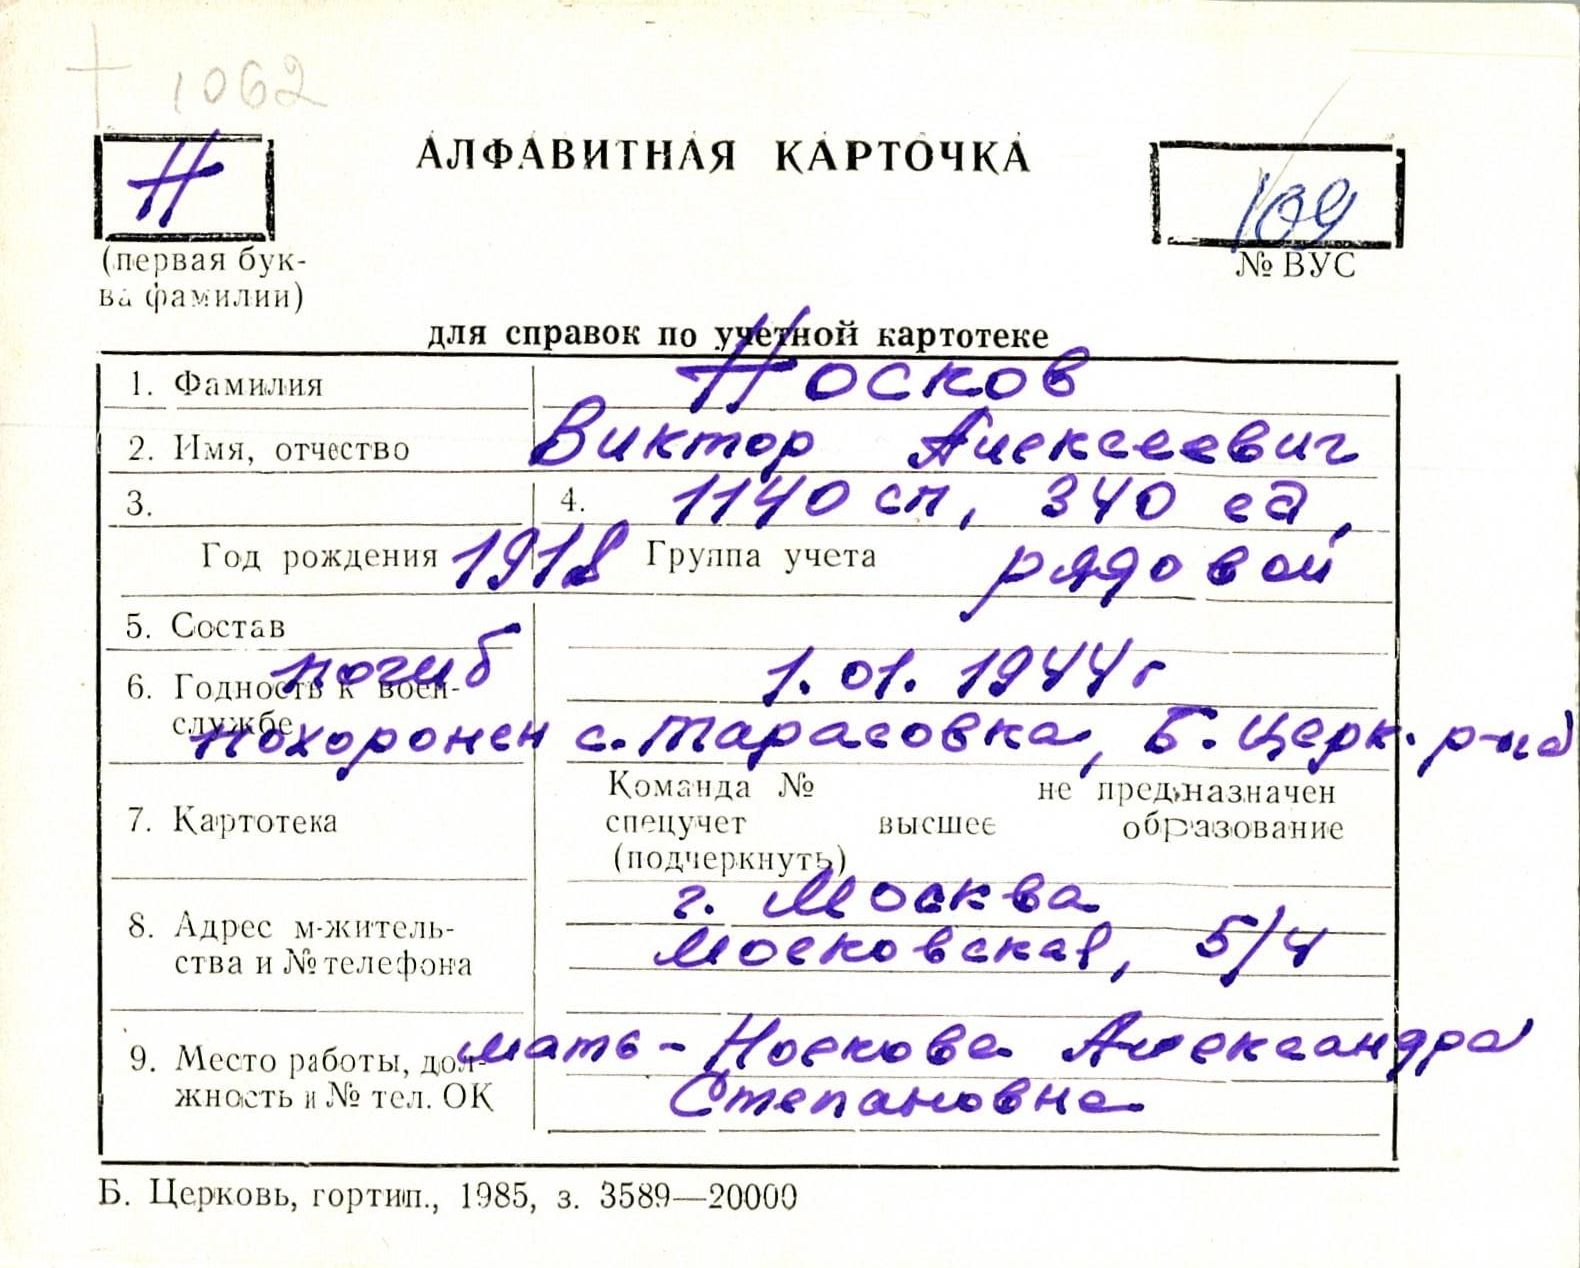 + 1062
Н
АЛФАВИТНАЯ КАРТОЧКА
109
(первая бук-
ва фамилии)
№ ВУС
для справок по учетной картотеке
1. Фамилия Носков
2. Имя, отчество Виктор Алексеевич
3. 4. 1140 сп, 340 сд,
Год рождения 1918 Группа учета рядовой
5. Состав
погиб 1.01.1944г
6. Годность к воен-
службе
похоронен с. Тарасовка, Б. Церк. р-на
7. Картотека
Команда № не предназначен
спецучет высшее образование
(подчеркнуть)
г. Москва
8. Адрес м-житель-
ства и № телефона
Московская, 5/4
9. Место работы, дол-
жность и № тел. ОК
мать - Носкова Александра
Степановна
Б. Церковь, гортип., 1985, з. 3589—20000